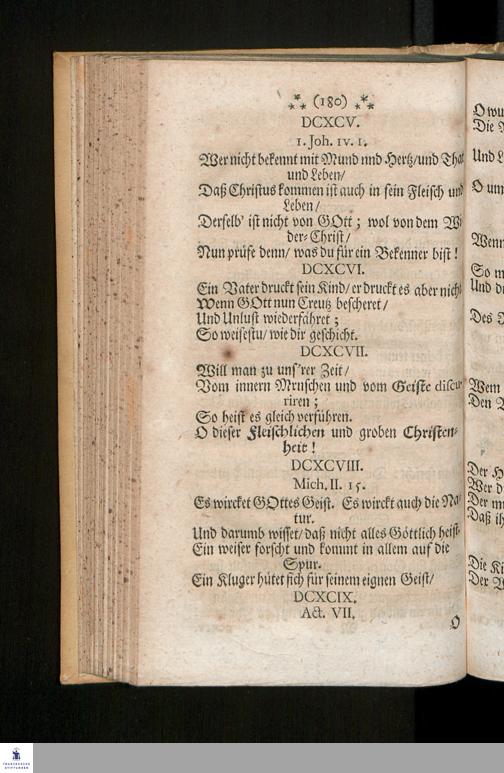 (180)
DCXCV.
1. Joh. IV. 1.
Wer nicht bekennt mit Mund nnd Hertz/ und That
und Leben/
Daß Christus kommen ist auch in sein Fleisch und
Leben/
Derselb' ist nicht von GOtt; wol von dem Wi
der-Christ/
Nun prüfe denn/ was du für ein Bekenner bist!
DCXCVI.
Ein Vater druckt sein Kind/ er druckt es aber nicht
Wenn GOtt nun Creutz bescheret/
Und Unlust wiederfähret;
So weisestu/ wie dir geschicht.
DCXCVII.
Will man zu uns'rer Zeit/
Vom innern Mrnschen und vom Geiste discu-
riren;
So heist es gleich verführen.
O dieser Fleischlichen und groben Christen-
heit!
DCXCVIII.
Mich. II. 15.
Es wircket GOttes Geist. Es wirckt auch die Na-
tur.
Und darumb wisset/ daß nicht alles Göttlich heist.
Ein weiser forscht und kommt in allem auf die
Spur.
Ein Kluger hütet sich für seinem eignen Geist/
DCXCIX.
Act. VII.
O
O wu
Die
Und L
O un
Wenn
So m
Und di
Des
Wem
Den
Der H
Wer d
Der m
Daß ih
Die Ki
Der
FRANCKESCHE
STIFTUNGEN